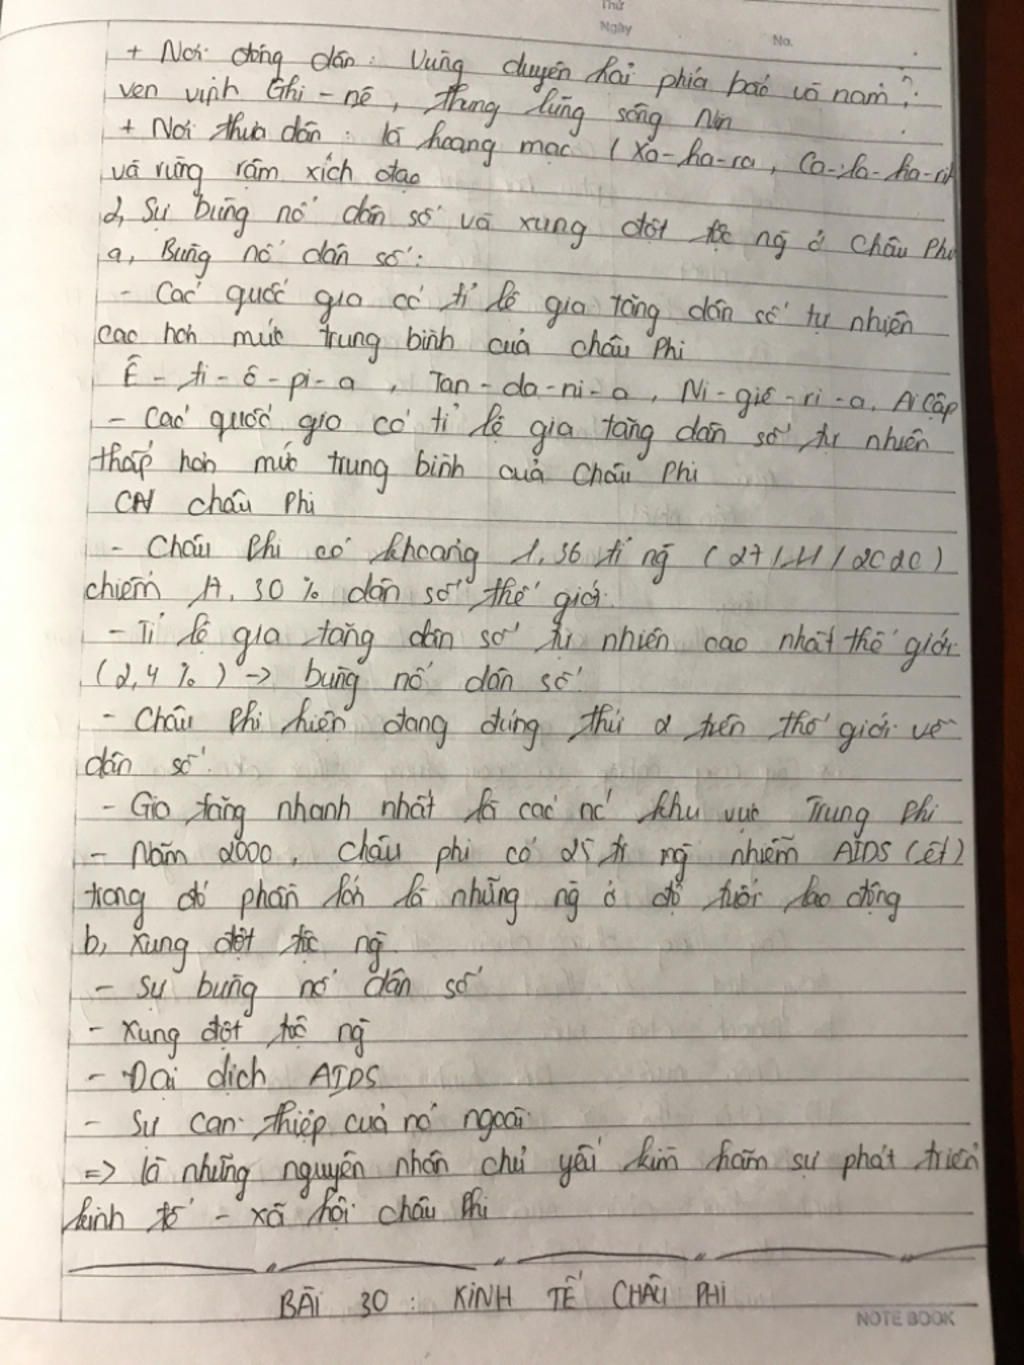 Thứ
Ngày
No.
+ Nơi đông dân : Vùng duyên hải phía bắc và nam,
ven vịnh Ghi-nê, thung lũng sông Nin
+ Nơi thưa dân : là hoang mạc (Xa-ha-ra, Ca-la-ha-ri)
và rừng rậm xích đạo
2, Sự bùng nổ dân số và xung đột tộc ng ở Châu Phi
a, Bùng nổ dân số :
- Các quốc gia có tỉ lệ gia tăng dân số tự nhiên
cao hơn mức trung bình của châu Phi
Ê-ti-ô-pi-a, Tan-da-ni-a, Ni-giê-ri-a, Ai Cập
- Các quốc gia có tỉ lệ gia tăng dân số tự nhiên
thấp hơn mức trung bình của Châu Phi
CH châu Phi
- Châu Phi có khoảng 1,36 tỉ ng (27/11/2020)
chiếm 17,30 % dân số thế giới.
- Tỉ lệ gia tăng dân số tự nhiên cao nhất thế giới
(2,4 %) -> bùng nổ dân số
- Châu Phi hiện đang đứng thứ 2 trên thế giới về
dân số.
- Gia tăng nhanh nhất là các nc' khu vực Trung Phi
- Năm 2000, châu phi có 25 tr ng nhiễm AIDS (ết)
trong đó phần lớn là những ng ở độ tuổi lao động
b, Xung đột tộc ng
- Sự bùng nổ dân số
- Xung đột tộc ng
- Đại dịch AIDS
- Sự can thiệp của nc' ngoài
=> là những nguyên nhân chủ yếu kìm hãm sự phát triển
kinh tế - xã hội châu Phi
BÀI 30 : KINH TẾ CHÂU PHI
NOTE BOOK